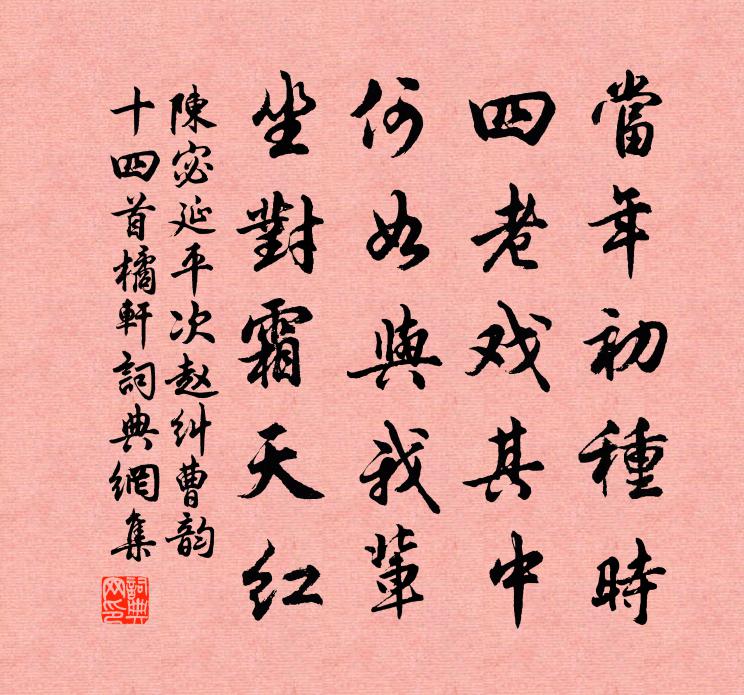 當年初種時
四老戏其中
何如與我輩
坐對霜天红
陳宓延平次赵纠曹韵
十四首橘軒詞典網集
詞典
网印